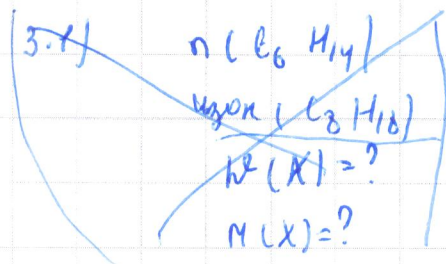 3.1) n(C6 H14)
изок (C8 H18)
W(X)=?
M(X)=?